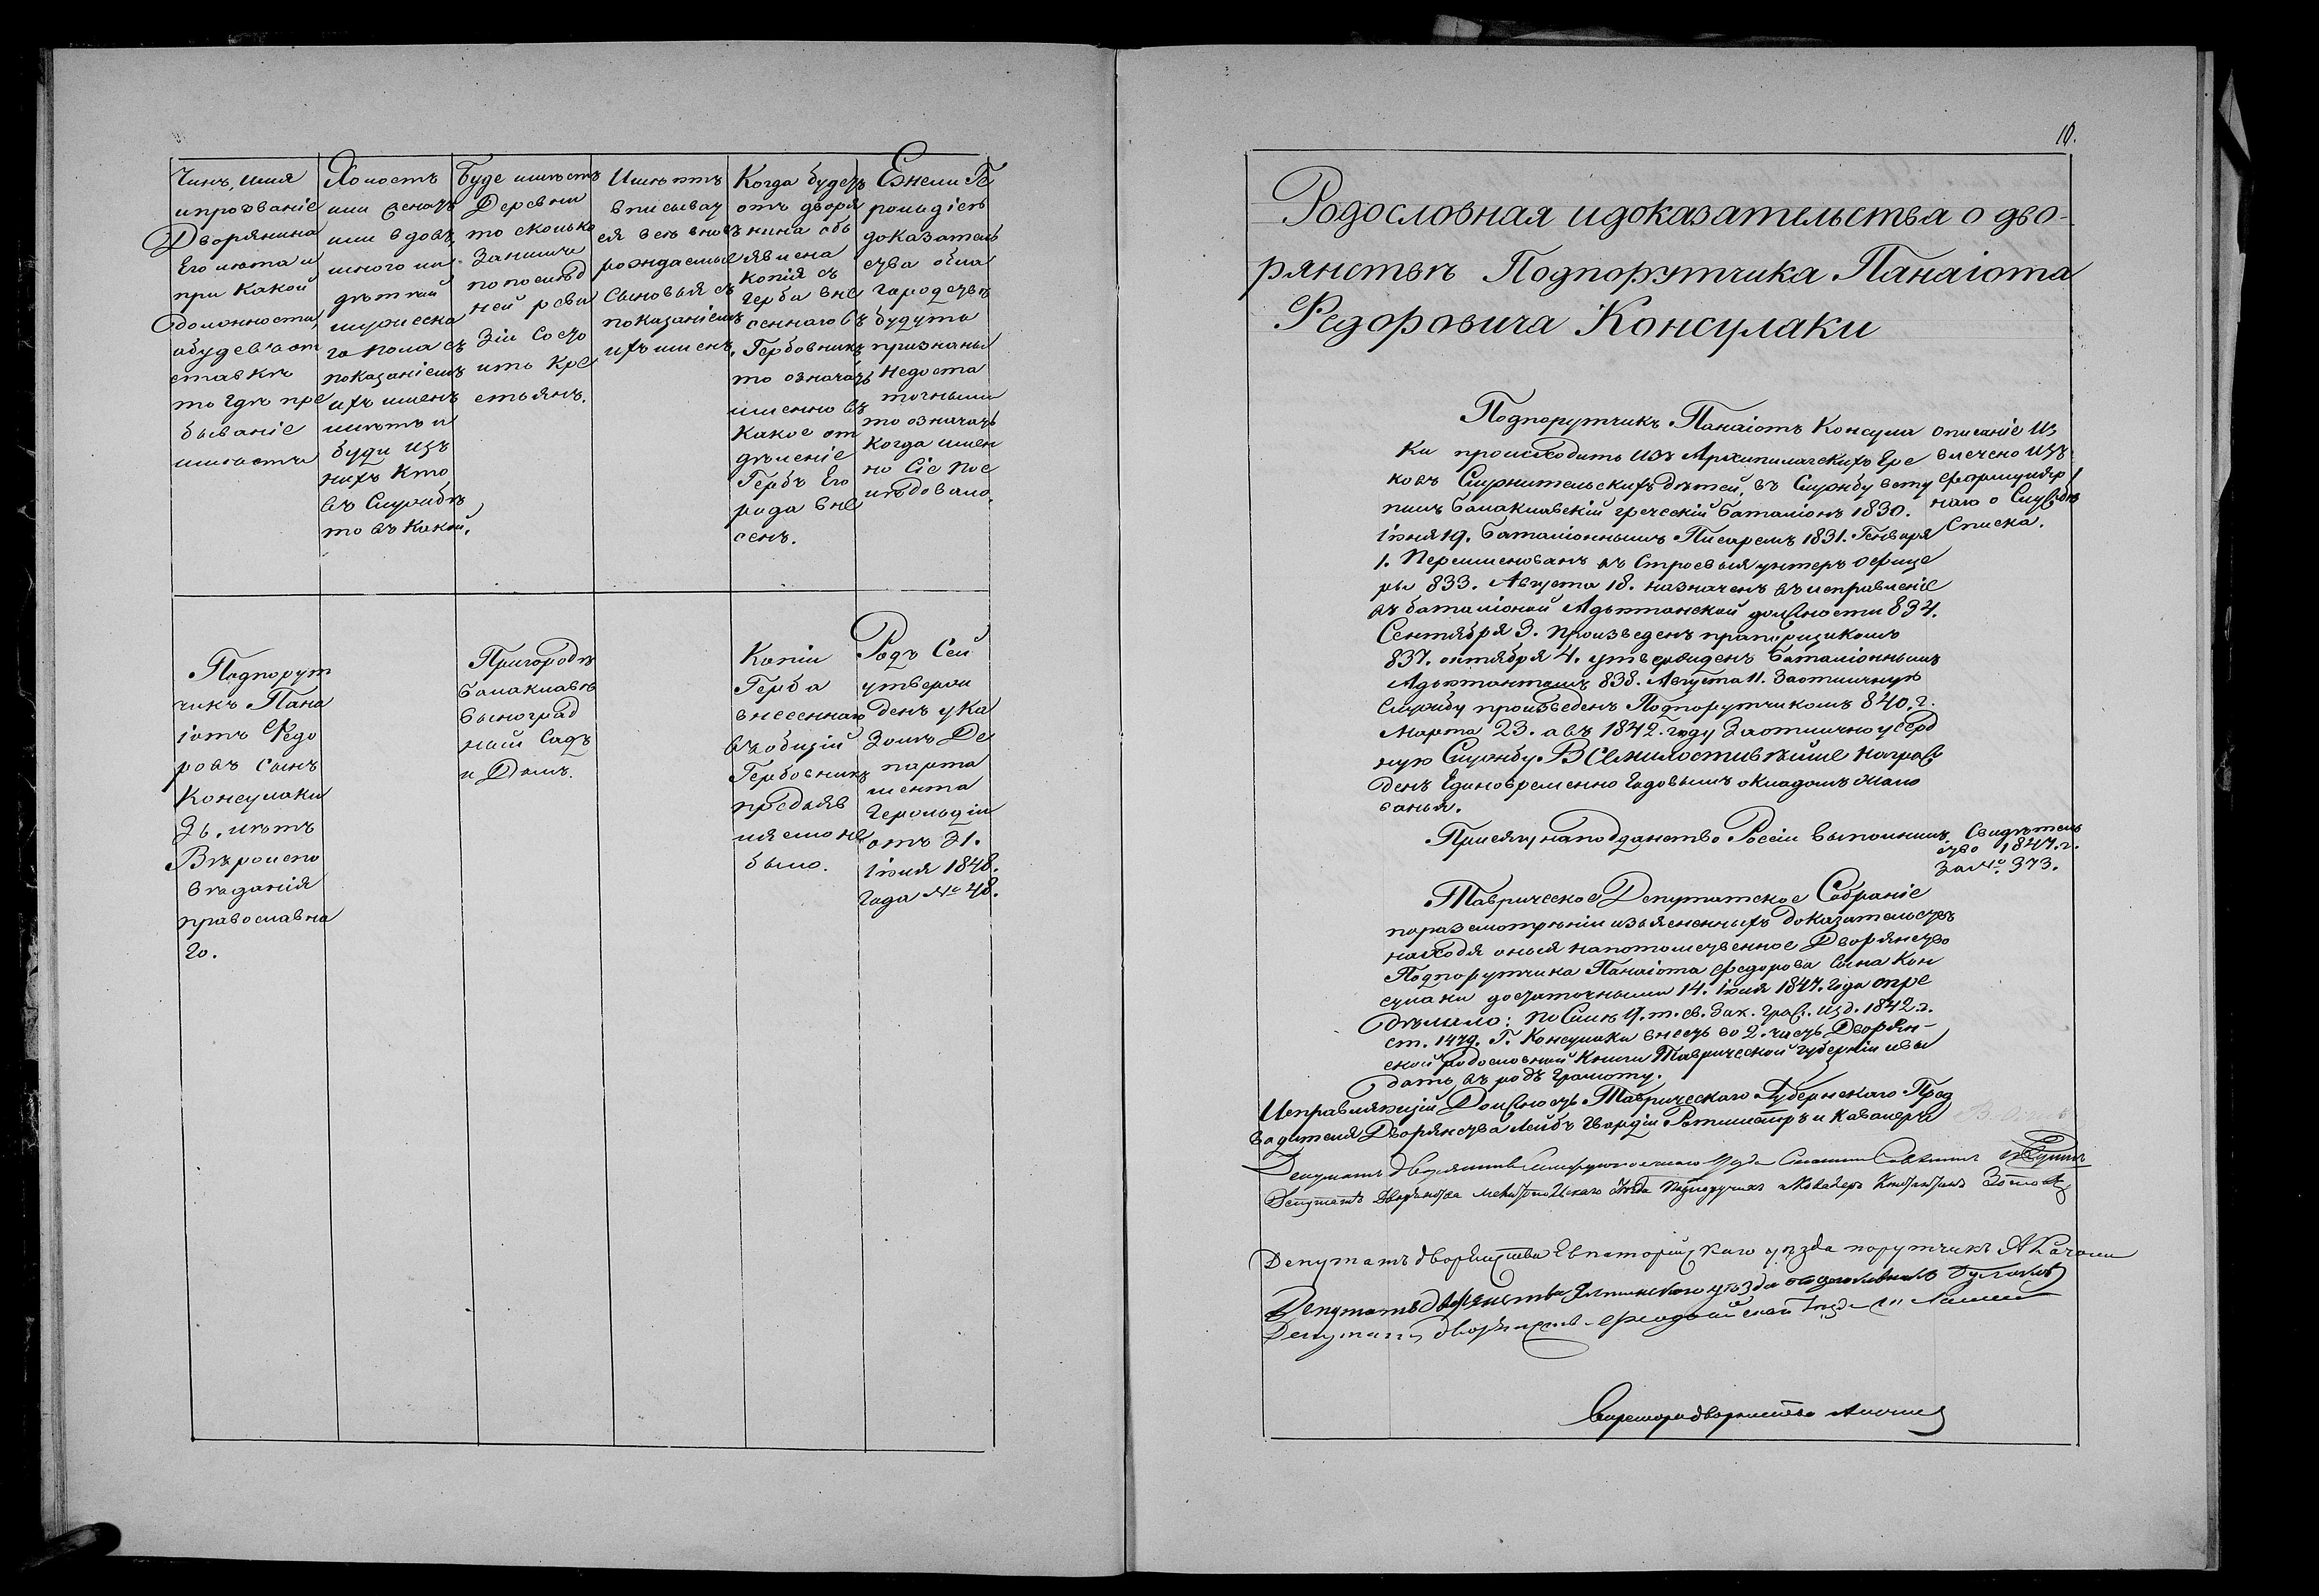 Чинъ, имя
ипрозваніе
Дворянина
Его лѣта и
при какой
должности,
абудевъот
ставкѣ
то гдѣ пре
бываніе
имѣетъ
Холостъ
или женатъ
или вдовъ,
много ли
дѣтей
мужеска
го пола съ
показаніемъ
ихъ именъ
лѣтъ и
буди изъ
нихъ кто
въ службѣ
то въ какой.
Буде имѣетъ
Деревни
то сколько
занимъ
по послѣд
ней реви
зіи состо
итъ кре
стьянъ.
Имѣютъ
вписыват
ся всѣ вновь
рождаемыя
сыновья съ
показаніемъ
ихъ именъ.
Когда будетъ
отъ дворя
нина объ
явлена
копія съ
герба вне
сеннаго въ
Гербовникъ
то означать
именно въ
какое от
дѣленіе
Гербъ Его
рода вне
сенъ.
Ежели Ге
рольдіею
доказатель
ства обла
городствѣ
будутъ
признаны
недоста
точными
то означать
когда имен
но сіе пос
лѣдовало.
Подпорут
чикъ Пана
іотъ Федо
ровъ сынъ
Консулаки
36. лѣтъ
Вѣроиспо
вѣданія
православна
го.
Пригородѣ
Балаклавѣ
Виноград
ный садъ
и Домъ.
Копіи
Герба
внесеннаго
въ общій
Гербовникъ
предъяв
ляемо не
было.
Родъ Сей
утверж
денъ ука
зомъ Де
парта
мента
Герольдіи
отъ 31.
Іюля 1848.
Года № 48.
10.
Родословная идоказательства о дво-
рянствѣ Подпорутчика Панаіота
Федоровича Консулаки
Подпорутчикъ Панаіотъ Консула
ки происходитъ изъ Архипилагскихъ Гре
ковъ Служительскихъ дѣтей, въ службу всту
пилъ Балаклавскій греческій баталіонъ 1830.
Іюня 19. Баталіоннымъ Писаремъ 1831. Генваря
1. Переименованъ въ строевыя унтеръ офице
ры 833. Августа 18. назначенъ въ исправленіе
въ баталіоной Адъютанской должности 834.
Сентября 3. произведенъ прапорщикомъ
837. октября 4. утвержденъ баталіоннымъ
Адъютантомъ 838. Августа 11. Заотличную
службу произведенъ Подпорутчикомъ 840.г.
Марта 23. а въ 1842. году Заотлично усерд
ную службу Всемилостивѣйше награж
денъ Единовременно годовымъ окладомъ жало
ванья.
описаніе из
влечено изъ
формулярю
наго о службѣ
Списка.
Присягу наподданство Россіи выполнилъ.
Свидѣтель
ство 1847.г.
За №. 373.
Таврическое Депутатское Собраніе
поразсмотрѣніи изъясненныхъ доказательствъ
находя оныя напотомственное Дворянство
Подпорутчика Панаіота Федорова сына Кон
сулаки достаточными 14. Іюля 1847. года опре
дѣлило: По силѣ 9. т. св. зак. граж. изд. 1842.г.
ст. 1479. Г. Консулаки внесть во 2. часть Дворян-
ской родословной книги Таврической губерніи ивы
дать въ родъ грамоту.
Исправляющій Должность Таврическаго Губернскаго Пред
водителя Дворянства Лейбъ Гвардіи Ротмистръ и Кавалеръ
Депутатъ Дворянства Симферопольскаго Уѣзда
Депутатъ Дворянства Мелитопольскаго Уѣзда Подпоручикъ и Кавалеръ Константинъ Зотовъ
Депутатъ дворянства Евпаторійскаго уѣзда порутчикъ А Качони
Депутатъ дворянства Ялтинскаго уѣзда
Депутатъ дворянства Феодосійскаго Уѣзда
Секретарь дворянства